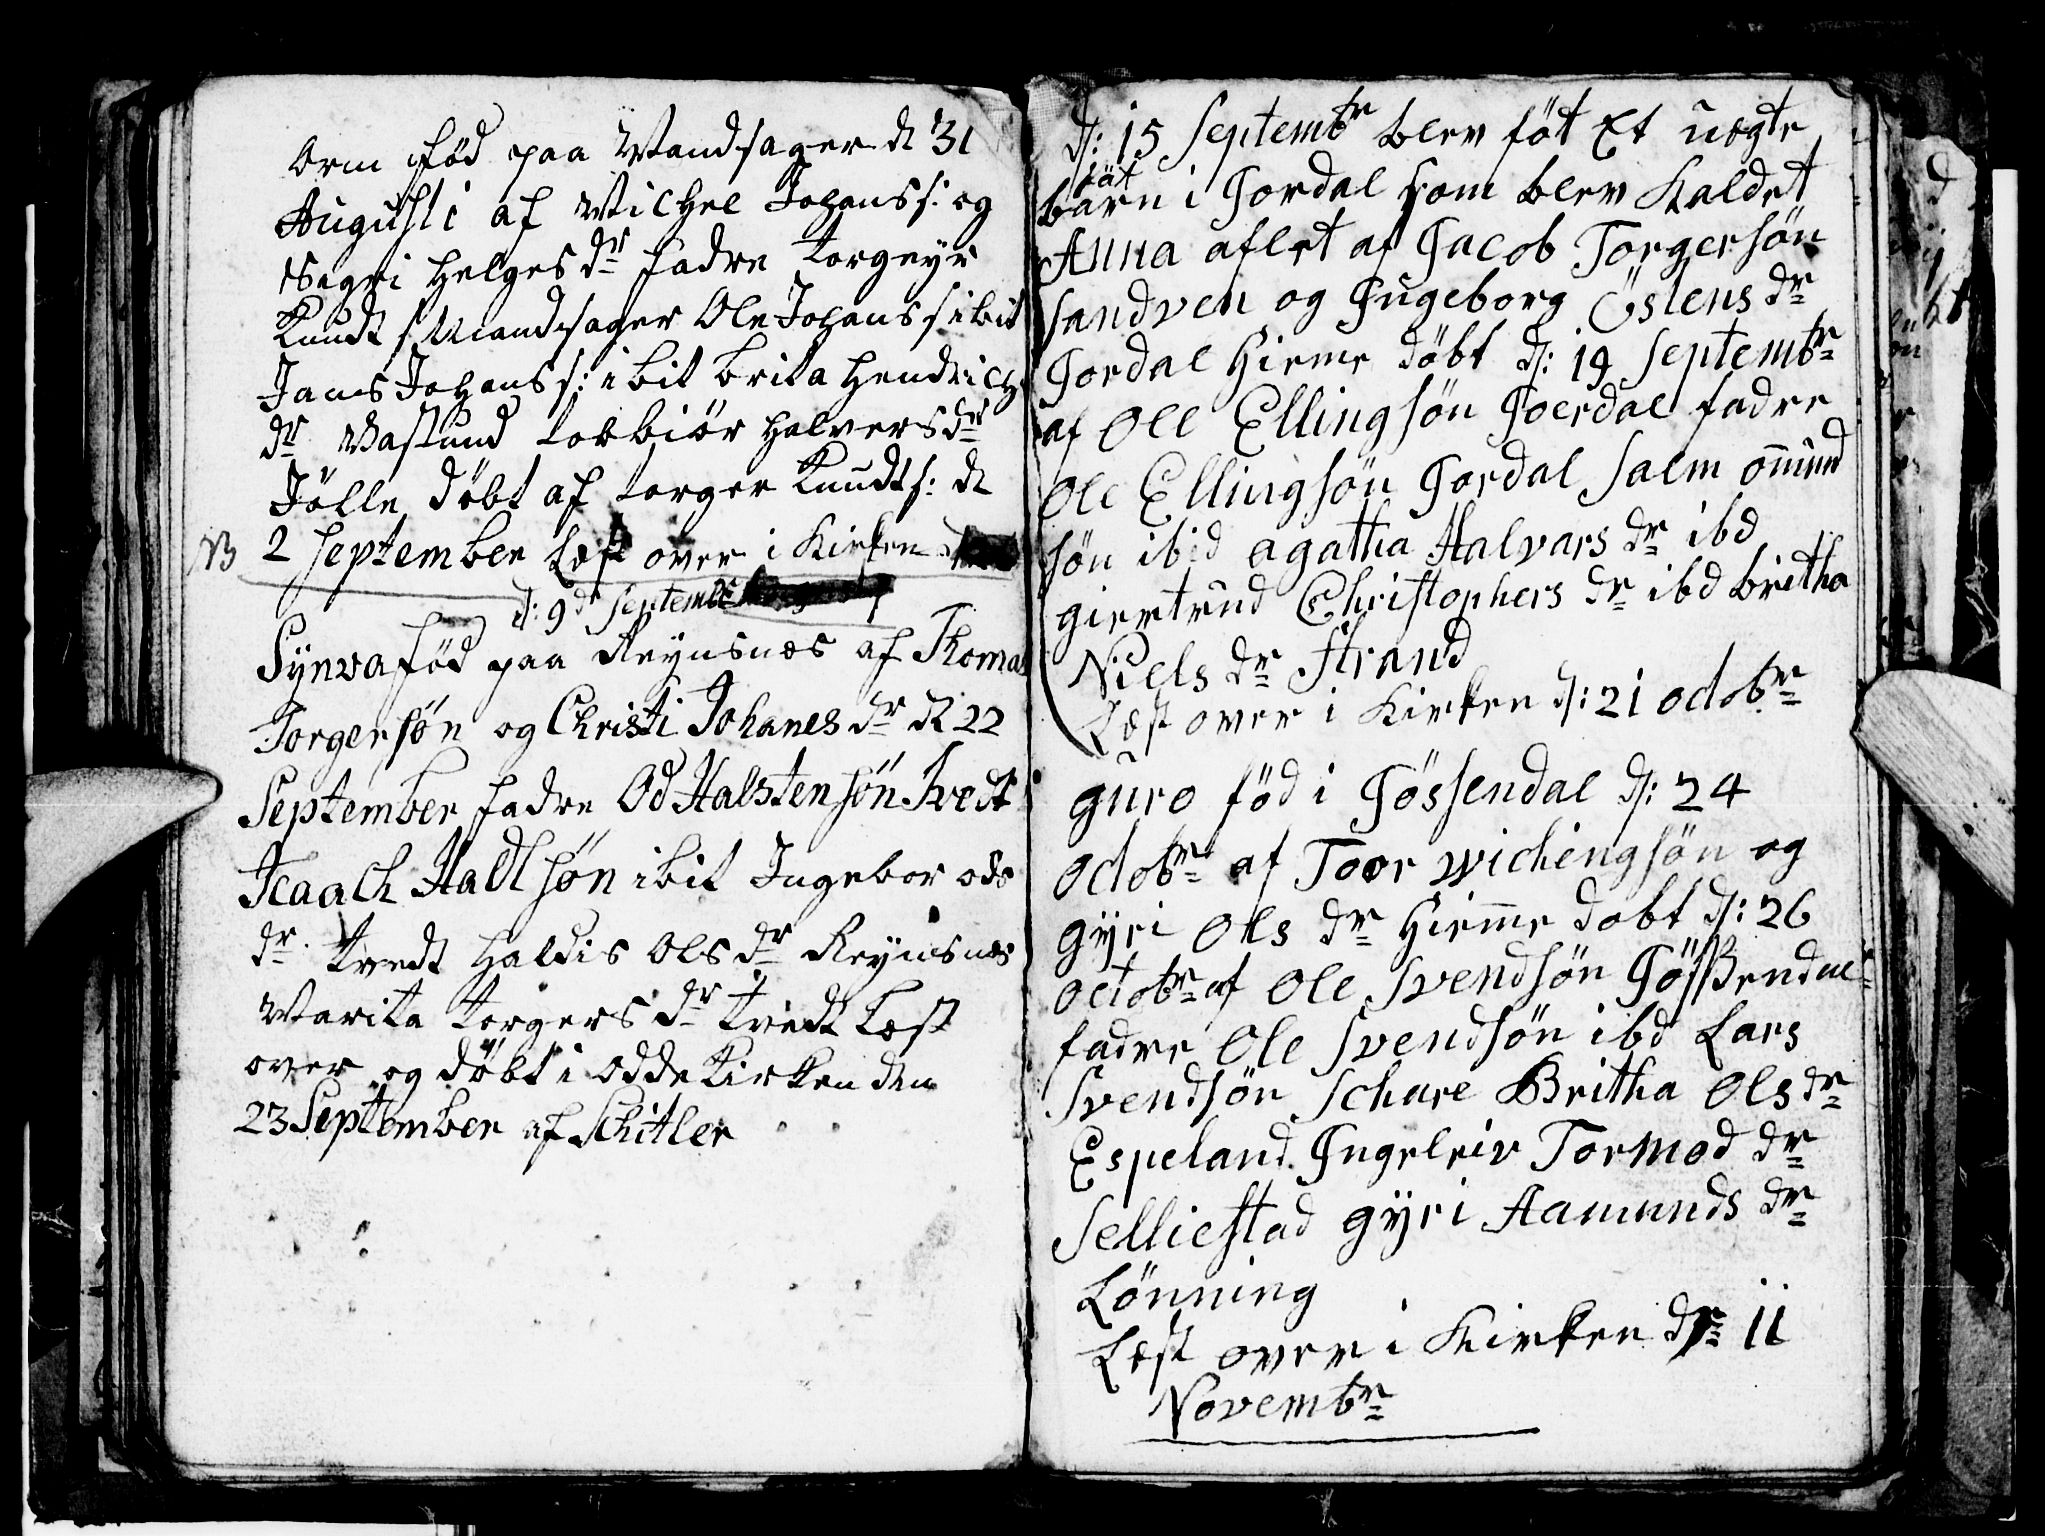 Orm fød paa Mandsager d 31
Augusti af Michel Johans s: og
Sagri Helges dr fadre Torgeyr
Knudt s Mandsager Ole Johans s ibit
Jans Johans s: ibit Brita Hendrichs
dr Vastund Torbiør Halvers dr
Jølle døbt af Torger Knudts: d
NB 2 September Læst over i Kirken
d: 9de Septembr
Synva fød paa Reynsnæs af Thomas
Torgersøn og Christi Johanes dr d 22
September fadre Od Halstensøn Tvedt
Isaach Hadlsøn ibit Ingebor ods
dr. Tvedt Haldis Ols dr Reynsnæs
Marita Torgers dr Tvedt Læst
over og døbt i Odde Kirken den
23 September af Schitler
d: 15 Septembr blev föt Et uægte
föt
barn i Jordal som blev Kaldet
Anna aflet af Jacob Torgersön
Sandven og Ingeborg Östens dr
Jordal Hieme döbt d: 19 Septembr
af Ole Ellingsön Joerdal fadre
Ole Ellingsön Jordal Salm omund
sön ibid agatha Halvars dr ibd
giertrud Christophers dr ibd britha
Niels dr Strand
Læst over i Kirken d: 21 octobr
guro född i Jössendal d: 24
octobr af Toor wichengsön og
gyri Ols dr Hieme dobt d: 26
octobr af Ole Svendsön Jössendal
fadre Ole Svendsön ibd Lars
Svendsön Schare Britha Ols dr
Espeland Ingeleiv Tormod dr
Selliestad gyri Aamunds dr
Lönning
Læst over i Kirken d 11
Novembr